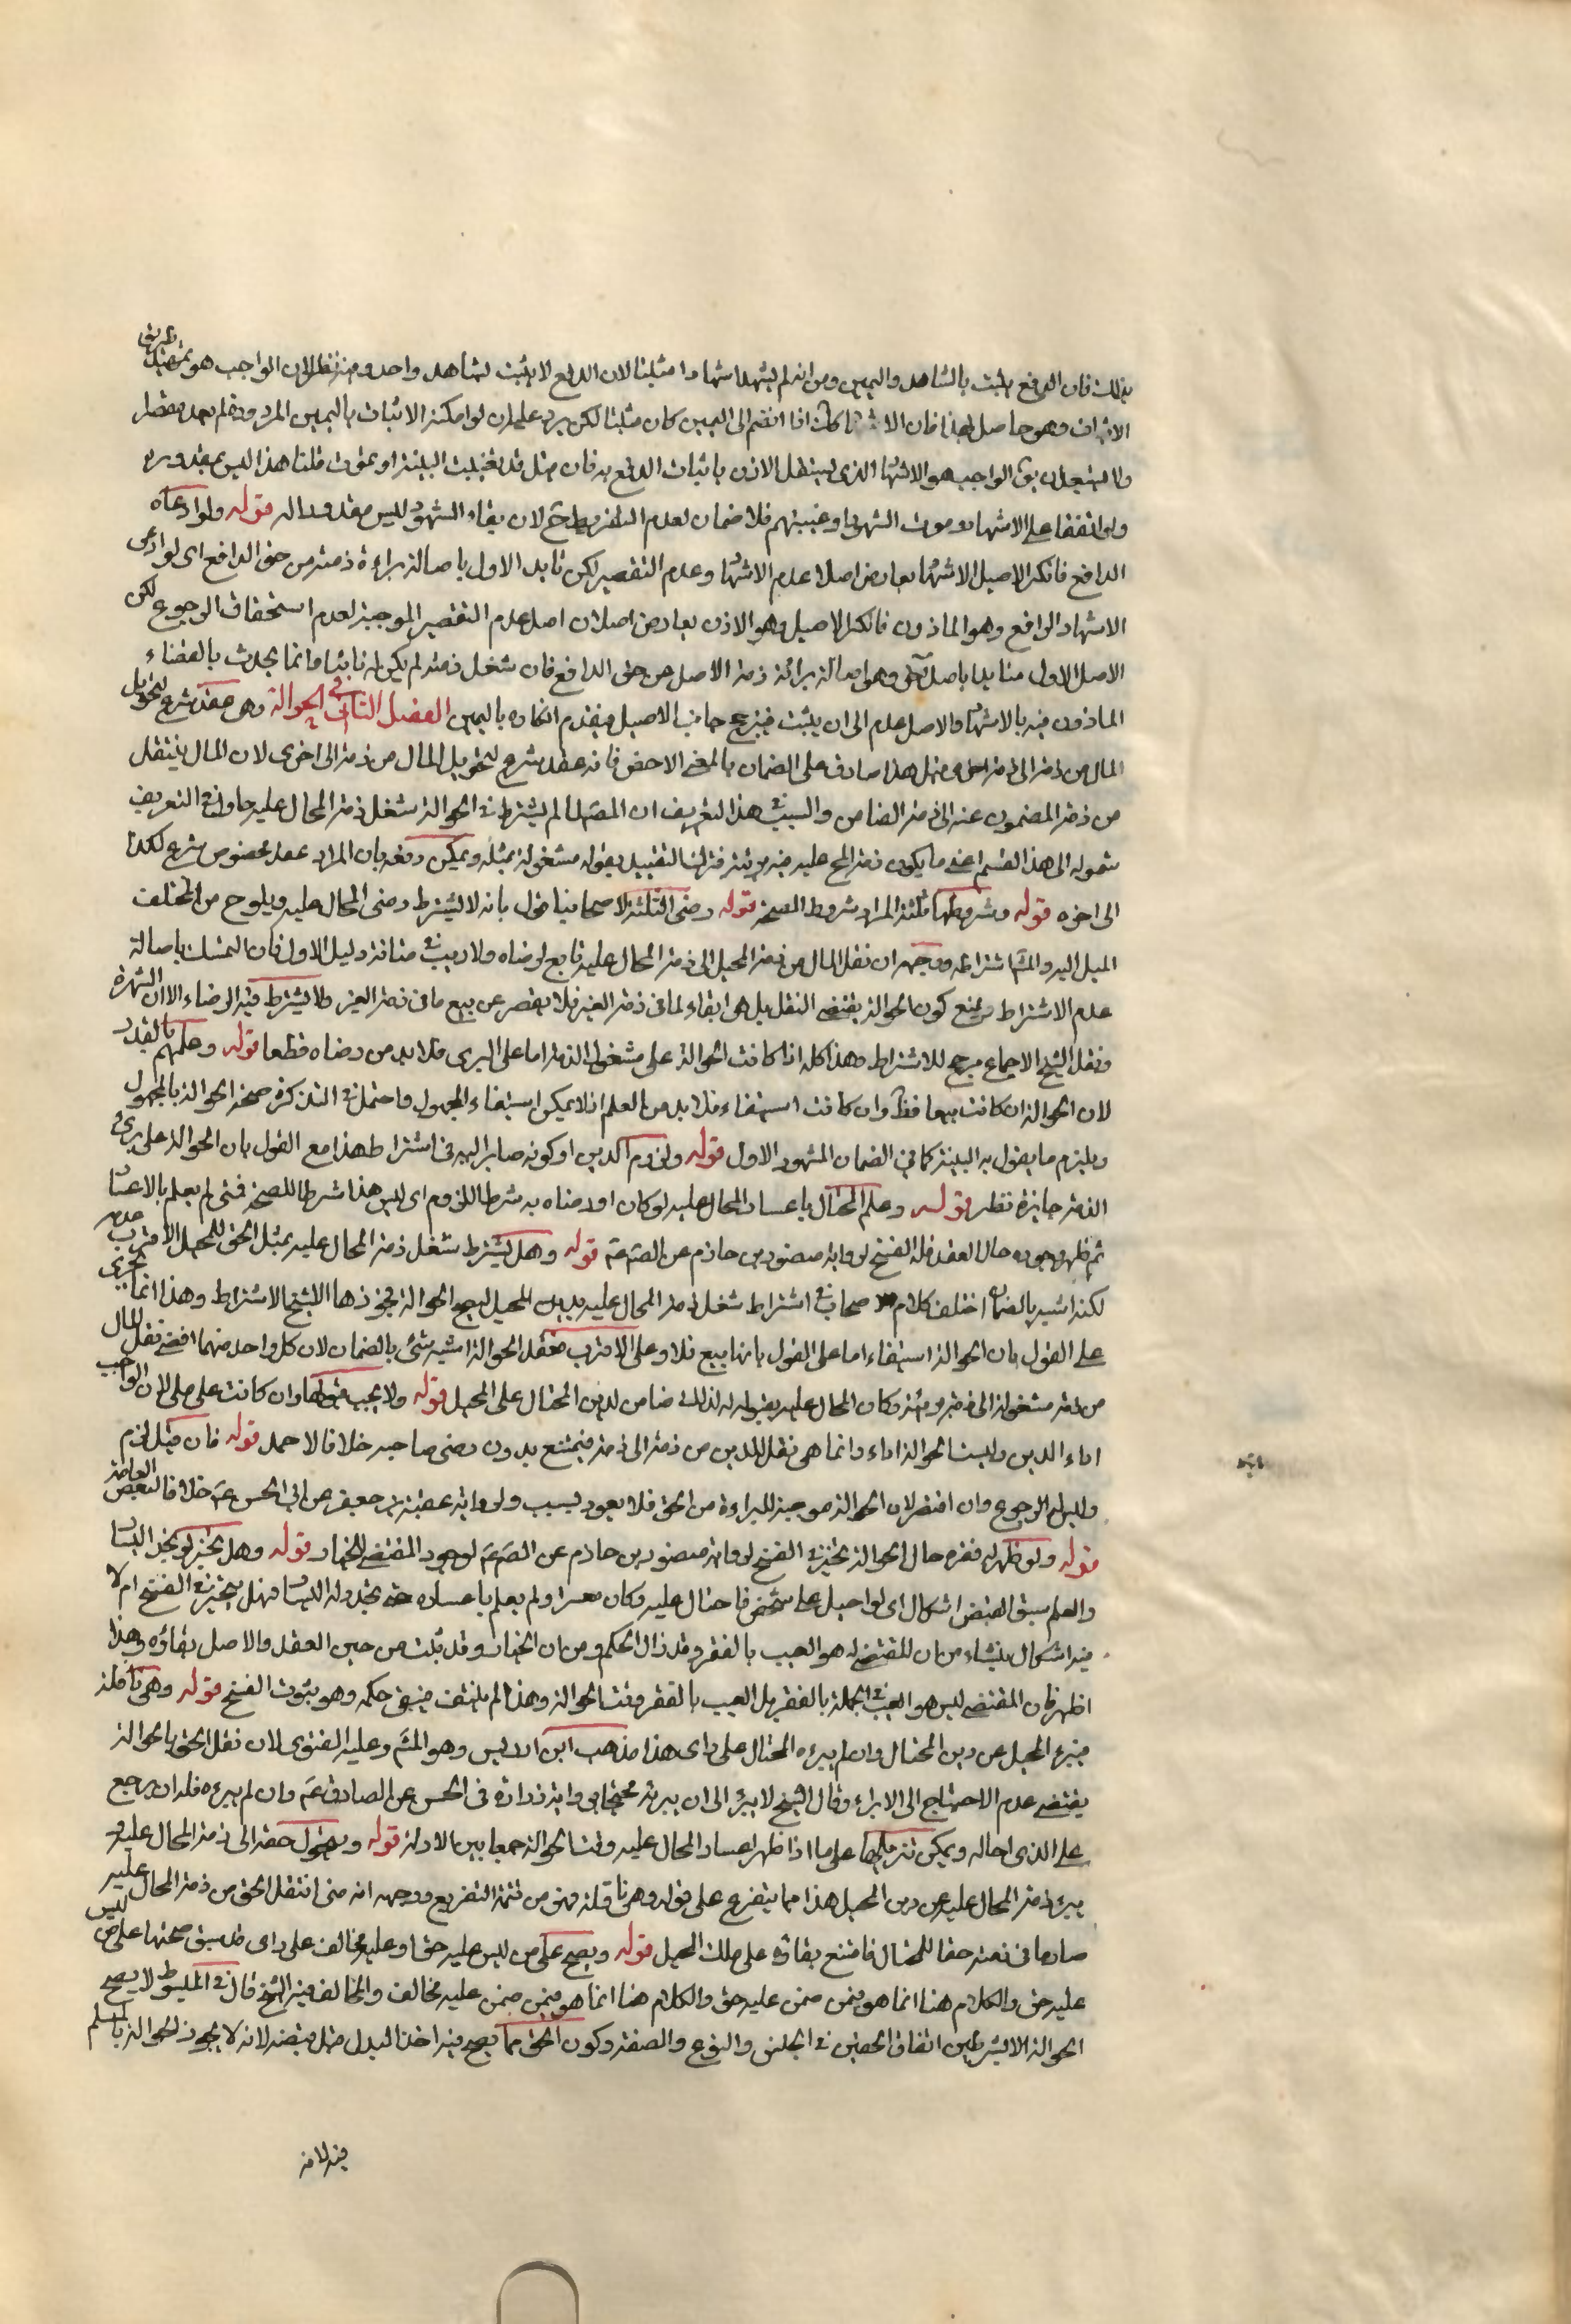 بذلك فان الدفع يثبت بالشاهد واليمين ومن انه لم يشهد اشهادا مثبتا لان الدفع لا يثبت بشاهد واحد وفيه نظر لان الواجب هو تمهيد طريق
الاثبات وهو حاصل بهذا فان الاشهاد اذا انضم الى اليمين كان مثبتا لكن يرد عليه ان لو امكنه الاثبات باليمين المردودة لم يعد مقصرا
الواجب هو الاشهاد الذى يستقل الاذن باثبات الدفع به فان مثل قد يغيب البينة او يموت قلنا هذا ليس بمقدوره
ولو اتفقا على الاشهاد وموت الشهود او غيبتهم فلا ضمان لعدم التفريط ح لان بقاء الشهود ليس مقدورا له قوله ولو ادعاه
الدافع فانكر الاصيل الاشهاد تعارض اصلا عدم الاشهاد وعدم التقصير لكن تايد الاول باصالة براءة ذمته من حق الدافع اى لو ادعى
الاشهاد الدافع وهو الماذون فانكر الاصيل وهو الاذن تعارض اصلان اصل عدم التقصير الموجبة لعدم استحقاق الرجوع لكن
الاصل الاول متايد باصل اخر وهو اصالة برائة ذمة الاصل من حق الدافع فان شغل ذمته لم يكن ثابتا وانما يحدث بالقضاء
الماذون فيه بالاشهاد والاصل عدمه الى ان يثبت فيترجح جانب الاصيل فيقدم انكاره باليمين الفصل الثانى فى الحوالة وهى عقد شرع لتحويل
المال من ذمة الى ذمة اخرى قيل هذا صادق على الضمان بالمعنى الاخص فانه عقد شرع لتحويل المال من ذمة الى اخرى لان المال ينتقل
من ذمة المضمون عنه الى ذمة الضامن والسبب فى هذا التعريف ان المص لما لم يشترط فى الحوالة شغل ذمة المحال عليه حاول فى التعريف
شموله الى هذا القسم اعنى ما يكون ذمة المح عليه فيه بريئة فترك التقييد بقوله مشغولة بمثله ويمكن دفعه بان المراد عقد مخصوص شرع لكذا
الى اخره قوله وشروطها ثلثة المراد شروط الصحة قوله رضى الثلثة لاصحابنا قول بانه لا يشترط رضى المحال عليه ويلوح من المختلف
الميل اليه والمشهور اشتراطه ووجهه ان نقل المال من ذمة المحيل الى ذمة المحال عليه تابع لرضاه ولا ريب فى متانة دليل الاول فان التمسك باصالة
عدم الاشتراط ومنع كون الحوالة يقتضى النقل بل هى ايفاء لما فى ذمة الغير فلا يقصر عن بيع ما فى ذمة الغير ولا يشترط فيه الرضاء الا ان الشهرة
ونقل الشيخ الاجماع مرجح للاشتراط وهذا كله اذا كانت الحوالة على مشغول الذمة اما على البرى فلا بد من رضاه قطعا قوله وعلمهم بالقدر
لان الحوالة ان كانت بيعا فظ وان كانت استيفاء فلا بد من العلم اذ لا يمكن استيفاء المجهول واحتمل فى التذكرة صحة الحوالة بالمجهول
ويلزم ما يقول به البينة كما فى الضمان المشهور الاول قوله ولزوم الدين او كونه صايرا اليه فى اشتراط هذا مع القول بان الحوالة على برئ
الذمة جايزة نظر قوله وعلم المحتال باعسار المحال عليه لو كان او رضاه به شرط اللزوم اى ليس هذا شرطا للصحة فمتى لم يعلم بالاعسار
ثم ظهر وجوده حال العقد فله الفسخ لرواية منصور بن حازم عن الص ع قوله وهل يشترط شغل ذمة المحال عليه بمثل الحق للمحيل الاقرب عدمه
لكنه اشبه بالضمان اختلف كلام الاصحاب فى اشتراط شغل ذمة المحال عليه بدين المحيل ليصح الحوالة فجوز هذا الشيخ الاشتراط وهذا انما يجرى
على القول بان الحوالة استيفاء اما على القول بانها بيع فلا وعلى الاقرب فعقد الحوالة اشبه شئ بالضمان لان كل واحد منهما اقتضى نقل المال
من ذمة مشغولة الى ذمة بريئة وكان المحال عليه بقبوله لذلك ضامن لدين المحتال على المحيل قوله ولا يجب قبولها وان كانت على ملى لان الواجب
اداء الدين وليست الحوالة اداء وانما هى نقل للدين من ذمة الى ذمة فيمتنع بدون رضى صاحبه خلافا لاحمد قوله فان قبل لزم
وليس له الرجوع وان افتقر لان الحوالة موجبة للبراءة من الحق فلا يعود بسبب ولرواية عقبة بن جعفر عن ابى الحسن ع خلافا لبعض العامة
قوله ولو ظهر له فقره حال الحوالة تخير فى الفسخ لرواية منصور بن حازم عن الص ع لوجود المقتضى للخيار قوله وهل يتخير لو تجدد اليسار
والعلم بسبق الفقر اشكال اى لو احيل على شخص فاحتال عليه وكان معسرا ولم يعلم باعساره حتى تجدد له اليسار فهل يتخير فى الفسخ ام لا
فيه اشكال ينشاء من ان المقتضى له هو العيب بالفقر وقد زال الحكم ومن ان الخيار قد ثبت من حين العقد والاصل بقاؤه وهذا
اظهر فان المقتضى ليس هو العيب فى الجملة بالفقر بل العيب بالفقر وقت الحوالة وهذا لم ينتف فيبقى حكمه وهو ثبوت الفسخ قوله وهى ناقلة
فيبرء المحيل عن دين المحتال وان لم يبرءه المحتال على راى هذا مذهب ابن ادريس وهو المش وعليه الفتوى لان نقل الحق بالحوالة
يقتضى عدم الاحتياج الى الابراء وقال الشيخ لا يبرء الى ان يبرئه محتجا برواية زرارة فى الحسن عن الصادق ع وان لم يبرءه فله ان يرجع
على الذى احاله ويمكن تنزيلها على ما اذا ظهر اعسار المحال عليه وقت الحوالة جمعا بين الادلة قوله ويتحول حقه الى ذمة المحال عليه و
يبرء ذمة المحال عليه من دين المحيل هذا مما يتفرع على قوله وهى ناقلة فهو من تتمة التفريع ووجهه انه متى انتقل الحق من ذمة المحال عليه
صار ما فى ذمته حقا للمحتال فامتنع بقاؤه على ملك المحيل قوله ويصح على من ليس عليه حق او عليه مخالف على راى قد سبق صحتها على من ليس
عليه حق والكلام هنا انما هو فيمن ضمن عليه حق والكلام هنا انما هو فيمن ضمن عليه مخالف والمخالف فيه الشيخ قال فى المبسوط لا يصح
الحوالة الا بشرطين اتفاق الحقين فى الجنس والنوع والصفة وكون الحق مما يصح فيه اخذ البدل قبل قبضه لانه لا يجوز الحوالة بالمسلم
فيه لانه